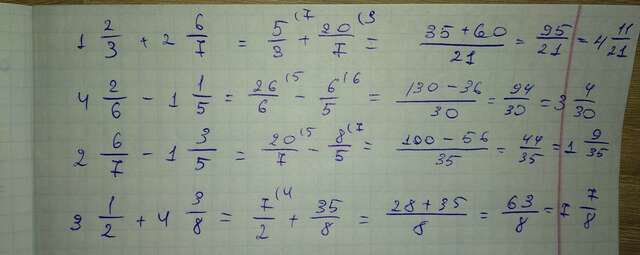 1 2/3 + 2 6/7 = 5/3 (7 + 20/7 (3 = (35+60)/21 = 95/21 = 4 11/21
4 2/6 - 1 1/5 = 26/6 (5 - 6/5 (6 = (130-36)/30 = 94/30 = 3 4/30
2 6/7 - 1 3/5 = 20/7 (5 - 8/5 (7 = (100-56)/35 = 44/35 = 1 9/35
3 1/2 + 4 3/8 = 7/2 (4 + 35/8 = (28+35)/8 = 63/8 = 7 7/8